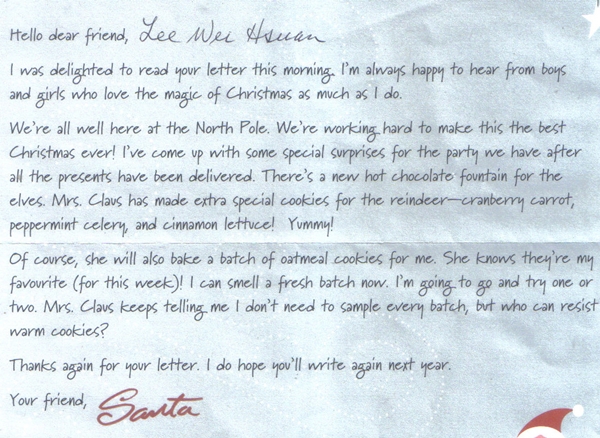 Hello dear friend, Lee Wei Hsuan
I was delighted to read your letter this morning. I'm always happy to hear from boys
and girls who love the magic of Christmas as much as I do.
We're all well here at the North Pole. We're working hard to make this the best
Christmas ever! I've come up with some special surprises for the party we have after
all the presents have been delivered. There's a new hot chocolate fountain for the
elves. Mrs. Claus has made extra special cookies for the reindeer—cranberry carrot,
peppermint celery, and cinnamon lettuce! Yummy!
Of course, she will also bake a batch of oatmeal cookies for me. She knows they're my
favourite (for this week)! I can smell a fresh batch now. I'm going to go and try one or
two. Mrs. Claus keeps telling me I don't need to sample every batch, but who can resist
warm cookies?
Thanks again for your letter. I do hope you'll write again next year.
Your friend, Santa